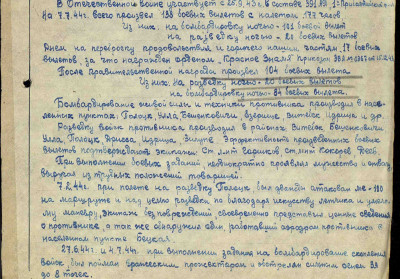 В Отечественной войне участвует с 25.9.43г. в составе 391
На 7.7.44г. всего произвел 138 боевых вылетов с налетом 177 часов
Из них на бомбардировку ночью - 101 боевой вылет
на разведку ночью - 20 боевых вылетов
Днем на переброску продовольствия и горючего нашим частям 17 боевых
вылетов, за что награжден орденом „Красное Знамя"
После правительственной награды произвел 104 боевых вылета
из них на разведку ночью - 20 боевых вылетов
на бомбардировку ночью - 84 боевых вылета.
Бомбардирование живой силы и техники противника производил в насе-
ленных пунктах: Полоцк, Улла, Бешенковичи, Идрица, Витебск, и др.
Разведку войск противника производил в районах Витебск, Бешенковичи
Улла, Полоцк, Дрисса, Идрица, Эффективность произведенных боевых
вылетов подтверждается экипажами ст. л-нт ст. л-нт
При выполнении боевых заданий неоднократно проявлял мужество и отвагу
выручая из трудных положений товарищей.
7.2.44г. при полете на разведку Полоцк был дважды атакован ме-110
на маршруте и над целью разведки но благодаря искусству летчика и умелому
маневру, экипаж без повреждений своевременно представил ценные сведения
о противнике, а так же обнаружил один, работавший аэродром противника в
населенном пункте
27.6.44г и 4.7.44г. при выполнении задания на бомбардирование скопления
войск был пойман вражеским прожектором и обстрелян сильным огнем ЗА
до 8 точек,